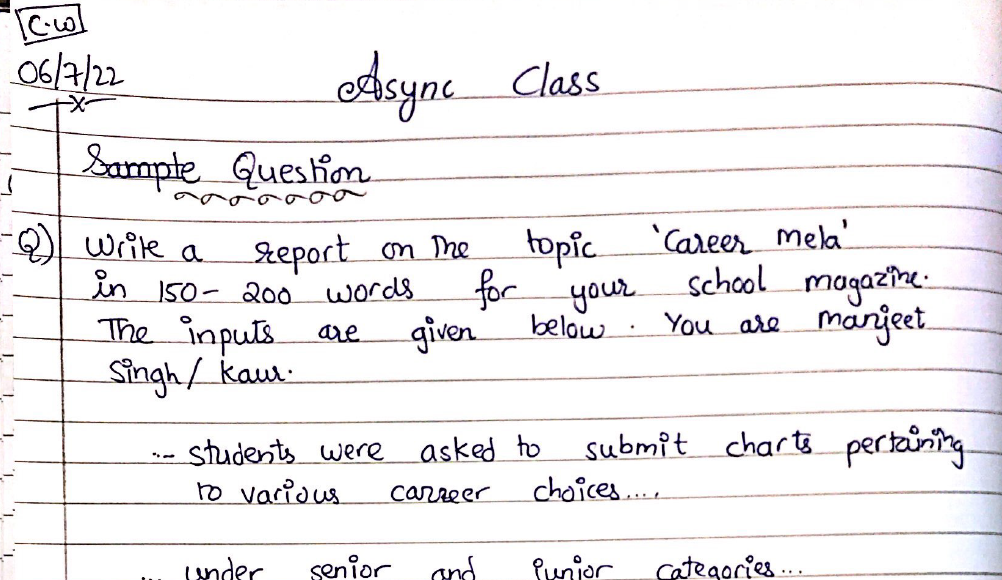 C.W
06/7/22
Async Class
Sample Question
Q) Write a report on the topic 'Career Mela'
in 150 - 200 words for your school magazine.
The inputs are given below. You are Manjeet
Singh / Kaur.
:- students were asked to submit charts pertaining
to various carreer choices....
... under senior and junior categories...